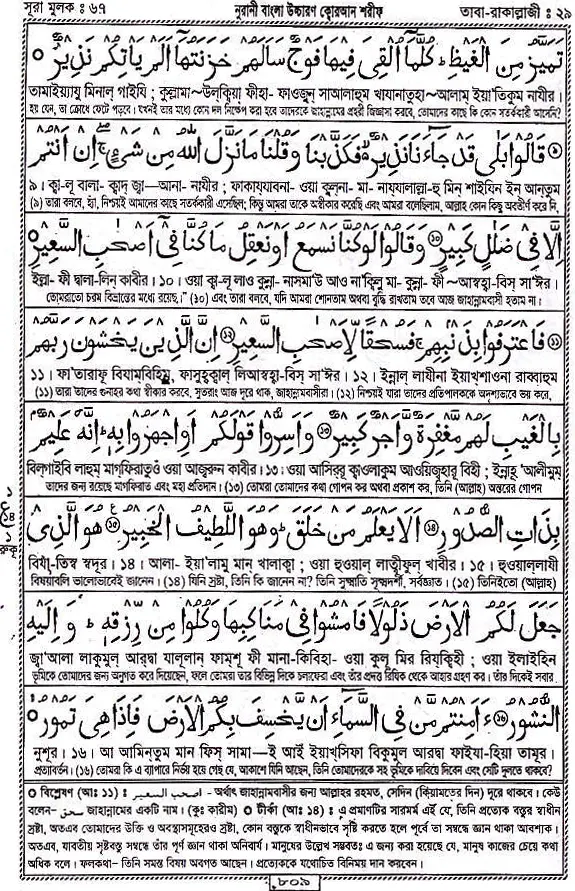 সূরা মুলক : ৬৭ নূরানী বাংলা উচ্চারণ কোরআন শরীফ তাবা-রাকাল্লাজী : ২৯
تميز من الغيظ ط كلما القى فيها فوج سالهم خزنتها الم ياتكم نذير
তামাইয়্যাযু মিনাল্ গাইযি ; কুল্লামা~উল্ক্বিয়া ফীহা- ফাওজুন্ সাআলাহুম্ খাযানাতুহা~আলাম্ ইয়া'তিকুম্ নাযীর।
হয় যেন, তা ক্রোধে ফেটে পড়বে। যখনই তার মধ্যে কোন দল নিক্ষেপ করা হবে তাদেরকে জাহান্নামের প্রহরী জিজ্ঞাসা করবে, তোমাদের কাছে কি কোন সতর্ককারী আসেনি?
قالوا بلى قد جاءنا نذير فكذبنا وقلنا ما نزل الله من شىء ان انتم
৯। ক্বা-লূ বালা- ক্বাদ্ জ্বা—আনা- নাযীর ; ফাকায্যাবনা- ওয়া ক্বুল্না- মা- নায্যালাল্লা-হু মিন্ শাইয়িন্ ইন্ আন্তুম্
(৯) তারা বলবে, হ্যাঁ, নিশ্চয়ই আমাদের কাছে সতর্ককারী এসেছিল; কিন্তু আমরা তাকে অস্বীকার করেছি এবং আমরা বলেছিলাম, আল্লাহ কোন কিছু অবতীর্ণ করে নি,
الا فى ضلل كبير ⑩ وقالوا لو كنا نسمع او نعقل ما كنا فى اصحب السعير
ইল্লা- ফী দ্বালা-লিন্ কাবীর। ১০। ওয়া ক্বা-লূ লাও কুন্না- নাস্মা'উ আও না'ক্বিলু মা- কুন্না- ফী~আস্বহা-বিস্ সা'ঈর।
তোমরাতো চরম বিভ্রান্তের মধ্যে রয়েছ।" (১০) এবং তারা বলবে, যদি আমরা শোনতাম অথবা বুদ্ধি রাখতাম তবে আজ জাহান্নামবাসী হতাম না।
فاعترفوا بذنبهم فسحقا لاصحب السعير ⑫ ان الذين يخشون ربهم
১১। ফা'তারাফূ বিযাম্বিহিম্, ফাসুহ্ক্বাল্ লিআস্বহা-বিস্ সা'ঈর। ১২। ইন্নাল্ লাযীনা ইয়াখ্শাওনা রাব্বাহুম
(১১) তারা তাদের গুনাহর কথা স্বীকার করবে, সুতরাং আজ দূরে থাক, জাহান্নামবাসীরা। (১২) নিশ্চয়ই যারা তাদের প্রতিপালককে অদৃশ্যভাবে ভয় করে,
بالغيب لهم مغفرة واجر كبير ⑬ واسروا قولكم اواجهروا به ط انه عليم
বিল্গাইবি লাহুম্ মাগ্ফিরাতুওঁ ওয়া আজ্বরুন কাবীর। ১৩। ওয়া আসিররূ ক্বাওলাকুম আওয়িজ্হারূ বিহী ; ইন্নাহূ 'আলীমুম্
তাদের জন্য রয়েছে মাগফিরাত এবং মহা প্রতিদান। (১৩) তোমরা তোমাদের কথা গোপন কর অথবা প্রকাশ কর, তিনি (আল্লাহ) অন্তরের গোপন
১
ع
১৪
১
রুকূ
بذات الصدور ⑭ الا يعلم من خلق ط وهو اللطيف الخبير ⑮ هو الذى
বিযা-তিস্ স্বদূর। ১৪। আলা- ইয়া'লামু মান্ খালাক্বা ; ওয়া হুওয়াল্ লাত্বীফুল্ খাবীর। ১৫। হুওয়াল্লাযী
বিষয়াবলি ভালোভাবেই জানেন। (১৪) যিনি স্রষ্টা, তিনি কি জানেন না? তিনি সুক্ষাতি সূক্ষ্মদর্শী, সর্বজ্ঞাত। (১৫) তিনিইতো (আল্লাহ)
جعل لكم الارض ذلولا فامشوا فى مناكبها وكلوا من رزقه ط و اليه
জ্বা'আলা লাকুমুল্ আর্দ্বা যালূলান্ ফাম্শূ ফী মানা-কিবিহা- ওয়া কুলূ মির রিয্ক্বিহী ; ওয়া ইলাইহিন
ভূমিকে তোমাদের জন্য অনুগত করে দিয়েছেন, ফলে তোমরা তার বিভিন্ন দিকে চলাফেরা এবং তাঁর প্রদত্ত রিযিক থেকে আহার গ্রহণ কর। তাঁর দিকেই সবার
النشور ⑯ ءامنتم من فى السماء ان يخسف بكم الارض فاذا هى تمور
নুশূর। ১৬। আ আমিন্তুম মান ফিস্ সামা—ই আইঁ ইয়াখ্সিফা বিকুমুল আর্দ্বা ফাইযা-হিয়া তামূর।
প্রত্যাবর্তন। (১৬) তোমরা কি এ ব্যাপারে নির্ভয় হয়ে গেছ যে, আকাশে যিনি আছেন, তিনি তোমাদেরকে সহ ভূমিকে দাবিয়ে দিবেন এবং সেটি দুলতে থাকবে?
০ বিশ্লেষণ (আঃ ১১) : اصحب السعير - অর্থাৎ জাহান্নামবাসীর জন্য আল্লাহর রহমত, সেদিন (কিয়ামতের দিন) দূরে থাকবে। কেউ
বলেন- سحق জাহান্নামের একটি নাম। (কুঃ কারীম) ০ টীকা (আঃ ১৪) : এ প্রমাণটির সারমর্ম এই যে, তিনি প্রত্যেক বস্তুর স্বাধীন
স্রষ্টা, অতএব তোমাদের উক্তি ও অবস্থাসমূহেরও স্রষ্টা, কোন বস্তুকে স্বাধীনভাবে সৃষ্টি করতে হলে পূর্বে তা সম্বন্ধে জ্ঞান থাকা আবশ্যক।
অতএব, যাবতীয় সৃষ্টবস্তু সম্বন্ধে তাঁর পূর্ণ জ্ঞান থাকা অনিবার্য। মানুষের উল্লেখ সম্ভবতঃ এ জন্য করা হয়েছে যে, মানুষ কাজের চেয়ে কথা
অধিক বলে। ফলকথা- তিনি সমস্ত বিষয় অবগত আছেন। প্রত্যেককে যথোচিত বিনিময় দান করবেন।
৮০৯